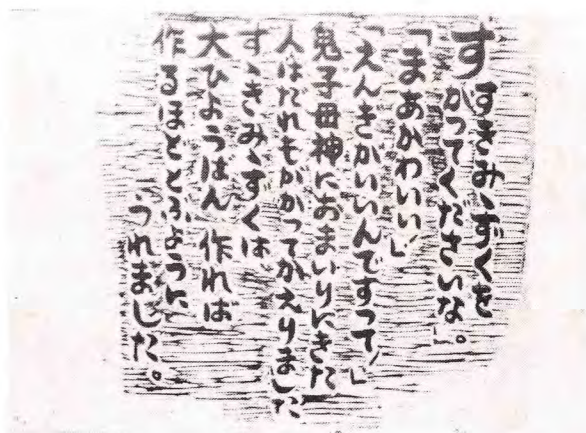 すすきみゝずくを
かってくださいな」。
「まあかわいい!」
「えんぎがいいんですって!」
鬼子母神におまいりにきた
人はだれもがかってかえりました
すゝきみゝずくは
大ひようばん 作れば
作るほどとぶように
うれました。